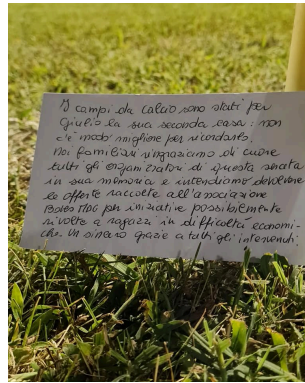 I campi da calcio sono stati per
Giulio la sua seconda casa: non
c'è modo migliore per ricordarlo.
Noi familiari ringraziamo di cuore
tutti gli organizzatori di questa serata
in sua memoria e intendiamo devolvere
le offerte raccolte all'associazione
per iniziative possibilmente
rivolte a ragazzi in difficoltà economi-
che. Un sincero grazie a tutti gli intervenuti.